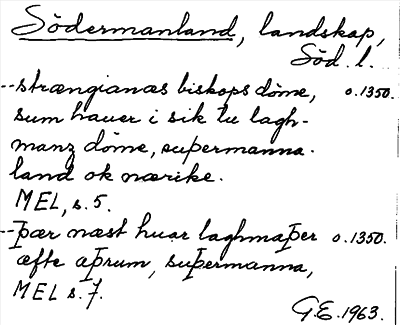 Södermanland, landskap,
Söd. l.
--strængianæs biskops döme, o.1350.
sum hauer i sik tu lagh-
manz döme, suþermanna-
land ok nærike.
MEL, s. 5.
--Þær næst huar laghmaþer o.1350.
æfte aþrum, suþermanna,
MEL s. 7.
G.E. 1963.